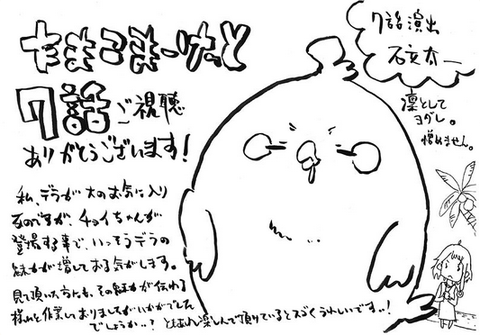 たまこまーけっと
7話ご視聴
ありがとうございます!
7話演出
石立太一
凛として
ヨダレ。
憎めません。
私、デラが大のお気に入り
なのですが、チョイちゃんが
登場する事で、いっそうデラの
魅力が増しておる気がします。
見て頂いた方にも、その魅力が伝わる
様にと作業しておりましたがいかがでした
でしょうか…? とにもかくにも楽しんで頂けているとスゴくうれしいです…!